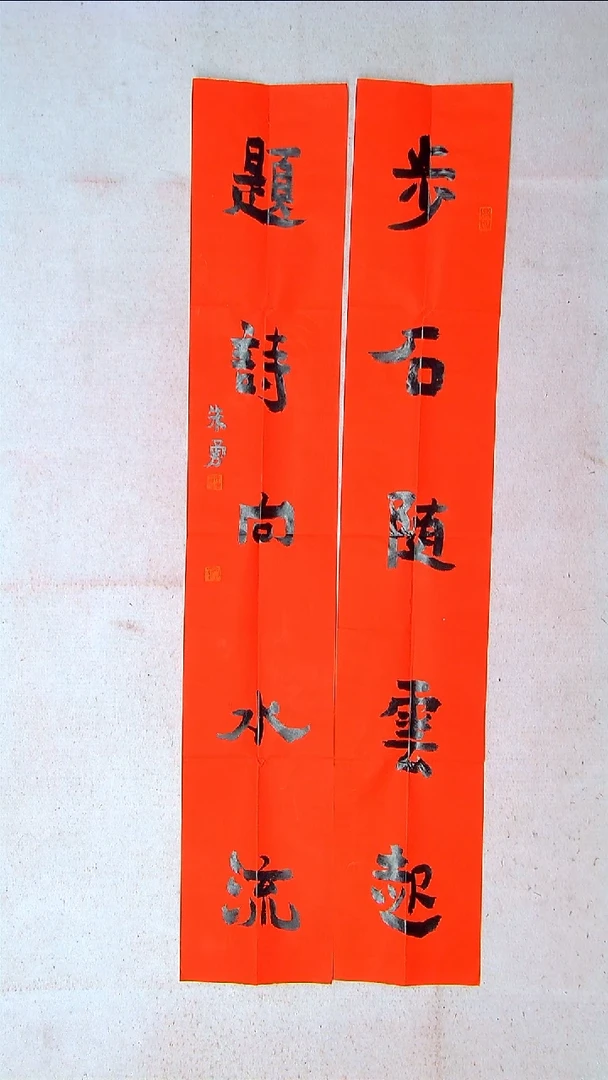 步石随雲起
題詩向水流
朱勇